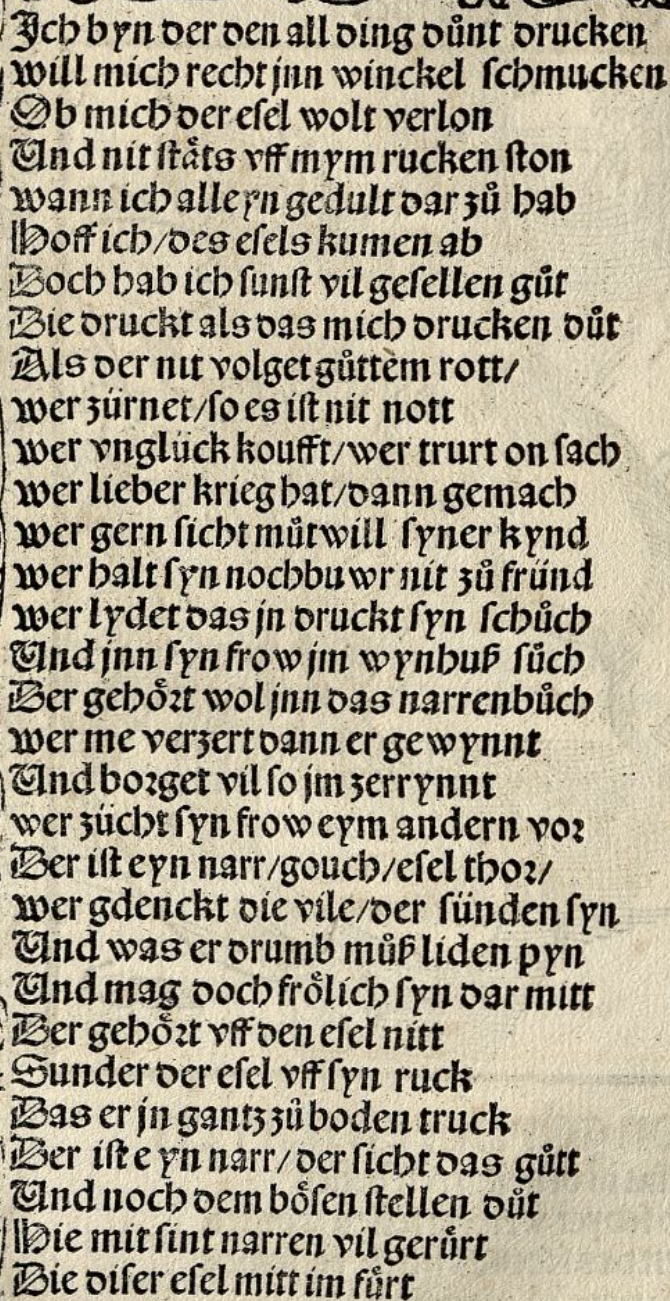 Ich byn der den all ding důnt drucken
will mich recht jnn winckel schmucken
Ob mich der esel wolt verlon
Und nit stäts vff mym rucken ston
wann ich alleyn gedult dar zů hab
Hoff ich/des esels kumen ab
Doch hab ich sunst vil gesellen gůt
Die druckt als das mich drucken důt
Als der nit volget gůttem rott/
wer zürnet/so es ist nit nott
wer vnglück koufft/wer trurt on sach
wer lieber krieg hat/dann gemach
wer gern sicht můtwill syner kynd
wer halt syn nochbuwr nit zů fründ
wer lydet das jn druckt syn schůch
Und jnn syn frow jm wynhuß sůch
Der gehört wol jnn das narrenbůch
wer me verzert dann er gewynnt
Und borget vil so jm zerrynnt
wer zücht syn frow eym andern vor
Der ist eyn narr/gouch/esel thor/
wer gdenckt die vile/der sünden syn
Und was er drumb můß liden pyn
Und mag doch frölich syn dar mitt
Der gehört vff den esel nitt
Sunder der esel vff syn ruck
Das er jn gantz zů boden truck
Der ist eyn narr/der sicht das gůtt
Und noch dem bösen stellen důt
Hie mit sint narren vil gerůrt
Die diser esel mitt im fůrt